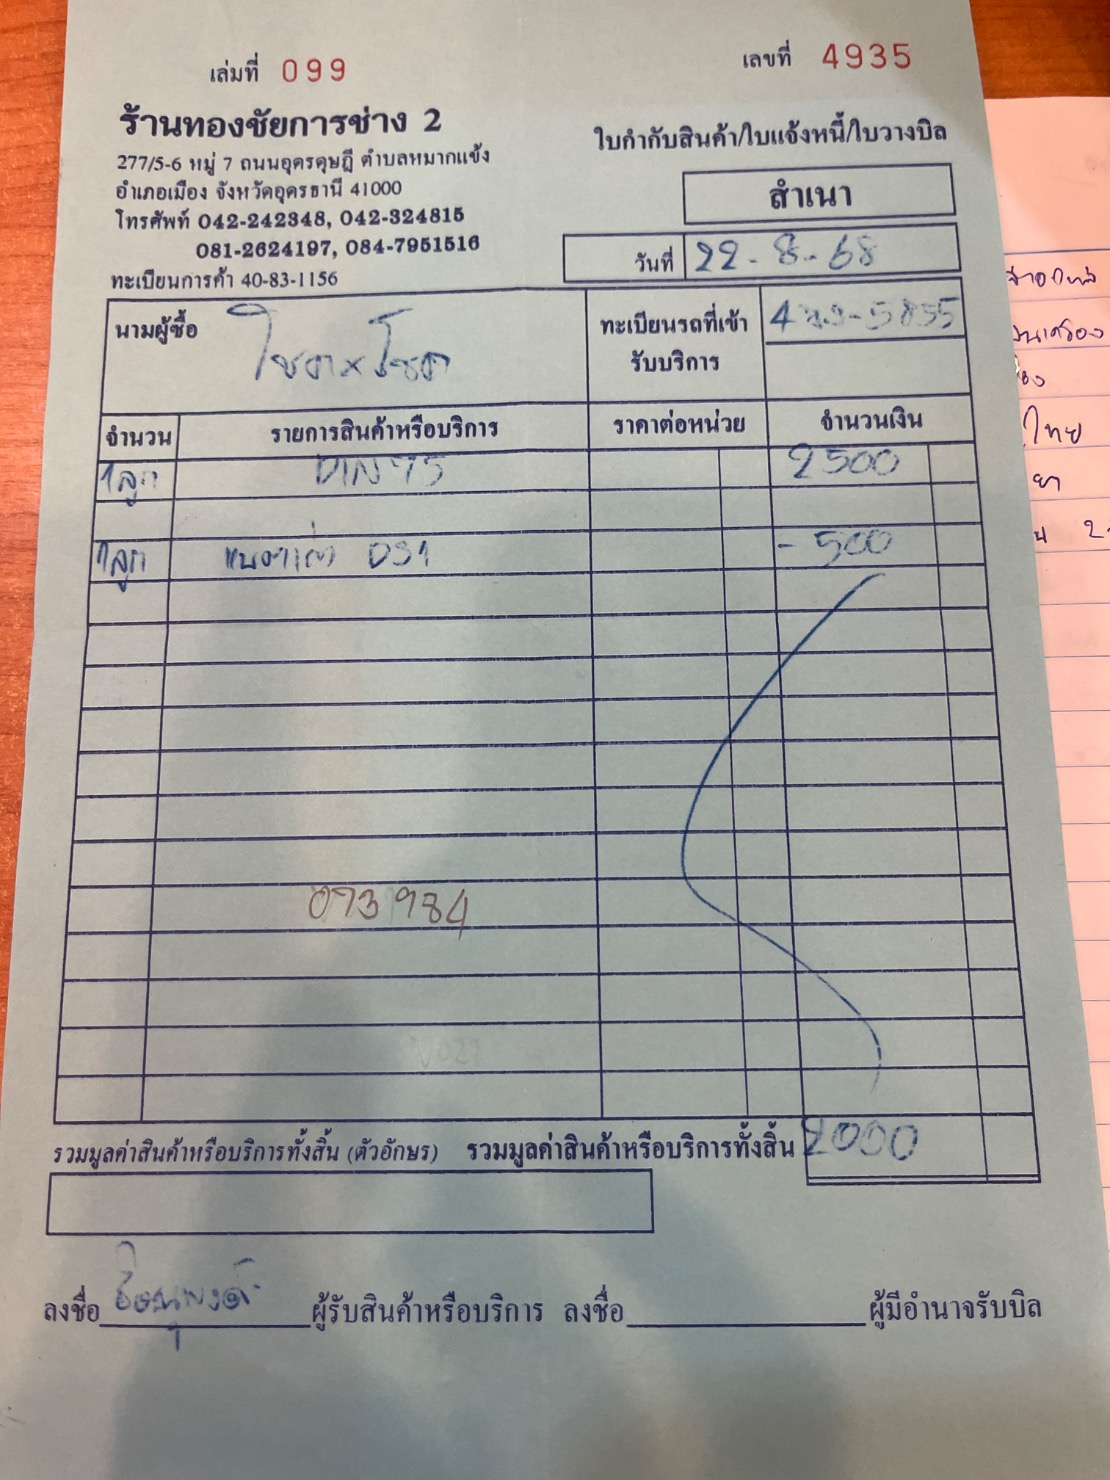 เล่มที่ 099
เลขที่ 4935
ร้านทองชัยการช่าง 2
277/5-6 หมู่ 7 ถนนอุดรดุษฎี ตำบลหมากแข้ง
อำเภอเมือง จังหวัดอุดรธานี 41000
โทรศัพท์ 042-242348, 042-324815
081-2624197, 084-7951516
ทะเบียนการค้า 40-83-1156
ใบกำกับสินค้า/ใบแจ้งหนี้/ใบวางบิล
สำเนา
วันที่ 22-8-68
นามผู้ซื้อ
ทะเบียนรถที่เข้า
รับบริการ
จำนวน รายการสินค้าหรือบริการ ราคาต่อหน่วย จำนวนเงิน
1ลูก DIN 75 2500
1ลูก แบตเก่า - 500
รวมมูลค่าสินค้าหรือบริการทั้งสิ้น (ตัวอักษร) รวมมูลค่าสินค้าหรือบริการทั้งสิ้น 2000
ลงชื่อ ผู้รับสินค้าหรือบริการ ลงชื่อ ผู้มีอำนาจรับบิล